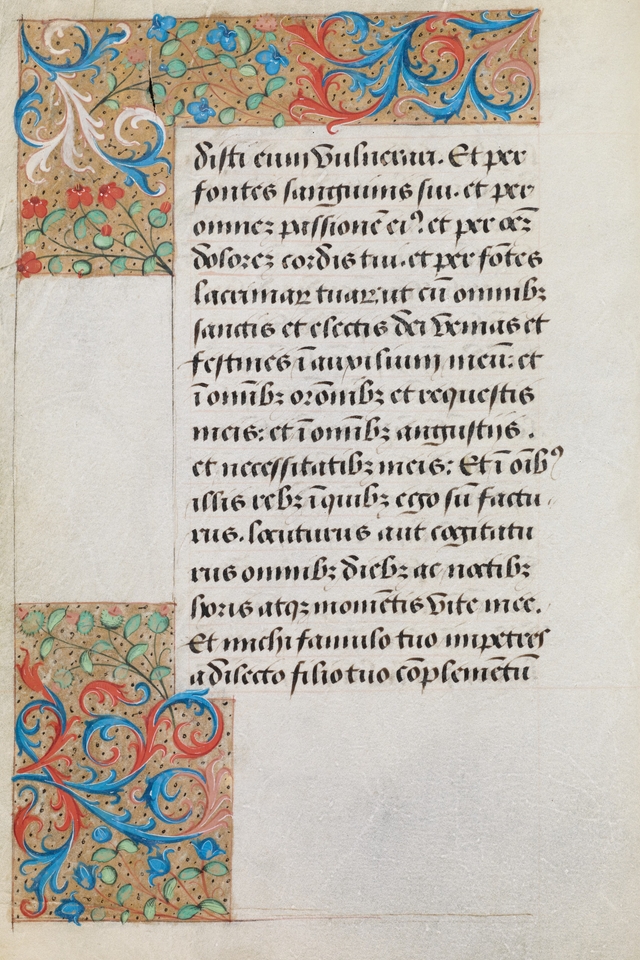 disti eum vulnerari. Et per
fontes sanguinis sui. et per
omnez passionē eiꝰ. et per oēz
dolorez cordis tui. et per fōtes
lacrimaꝝ tuaꝝ: ut cū omnibꝫ
sanctis et electis dei venias et
festines ī auxilium meū: et
ī omībꝫ orōnibꝫ et requestis
meis: et ī omībꝫ angustijs.
et necessitatibꝫ meis: Et ī oībꝰ
illis rebꝫ īquibꝫ ego sū factu
rus. locuturus aut cogitatu
rus omnibꝫ diebꝫ ac noctibꝫ
horis atqꝫ momētis vite mee.
Et michi famulo tuo impetres
a dilecto filio tuo cōplemētū